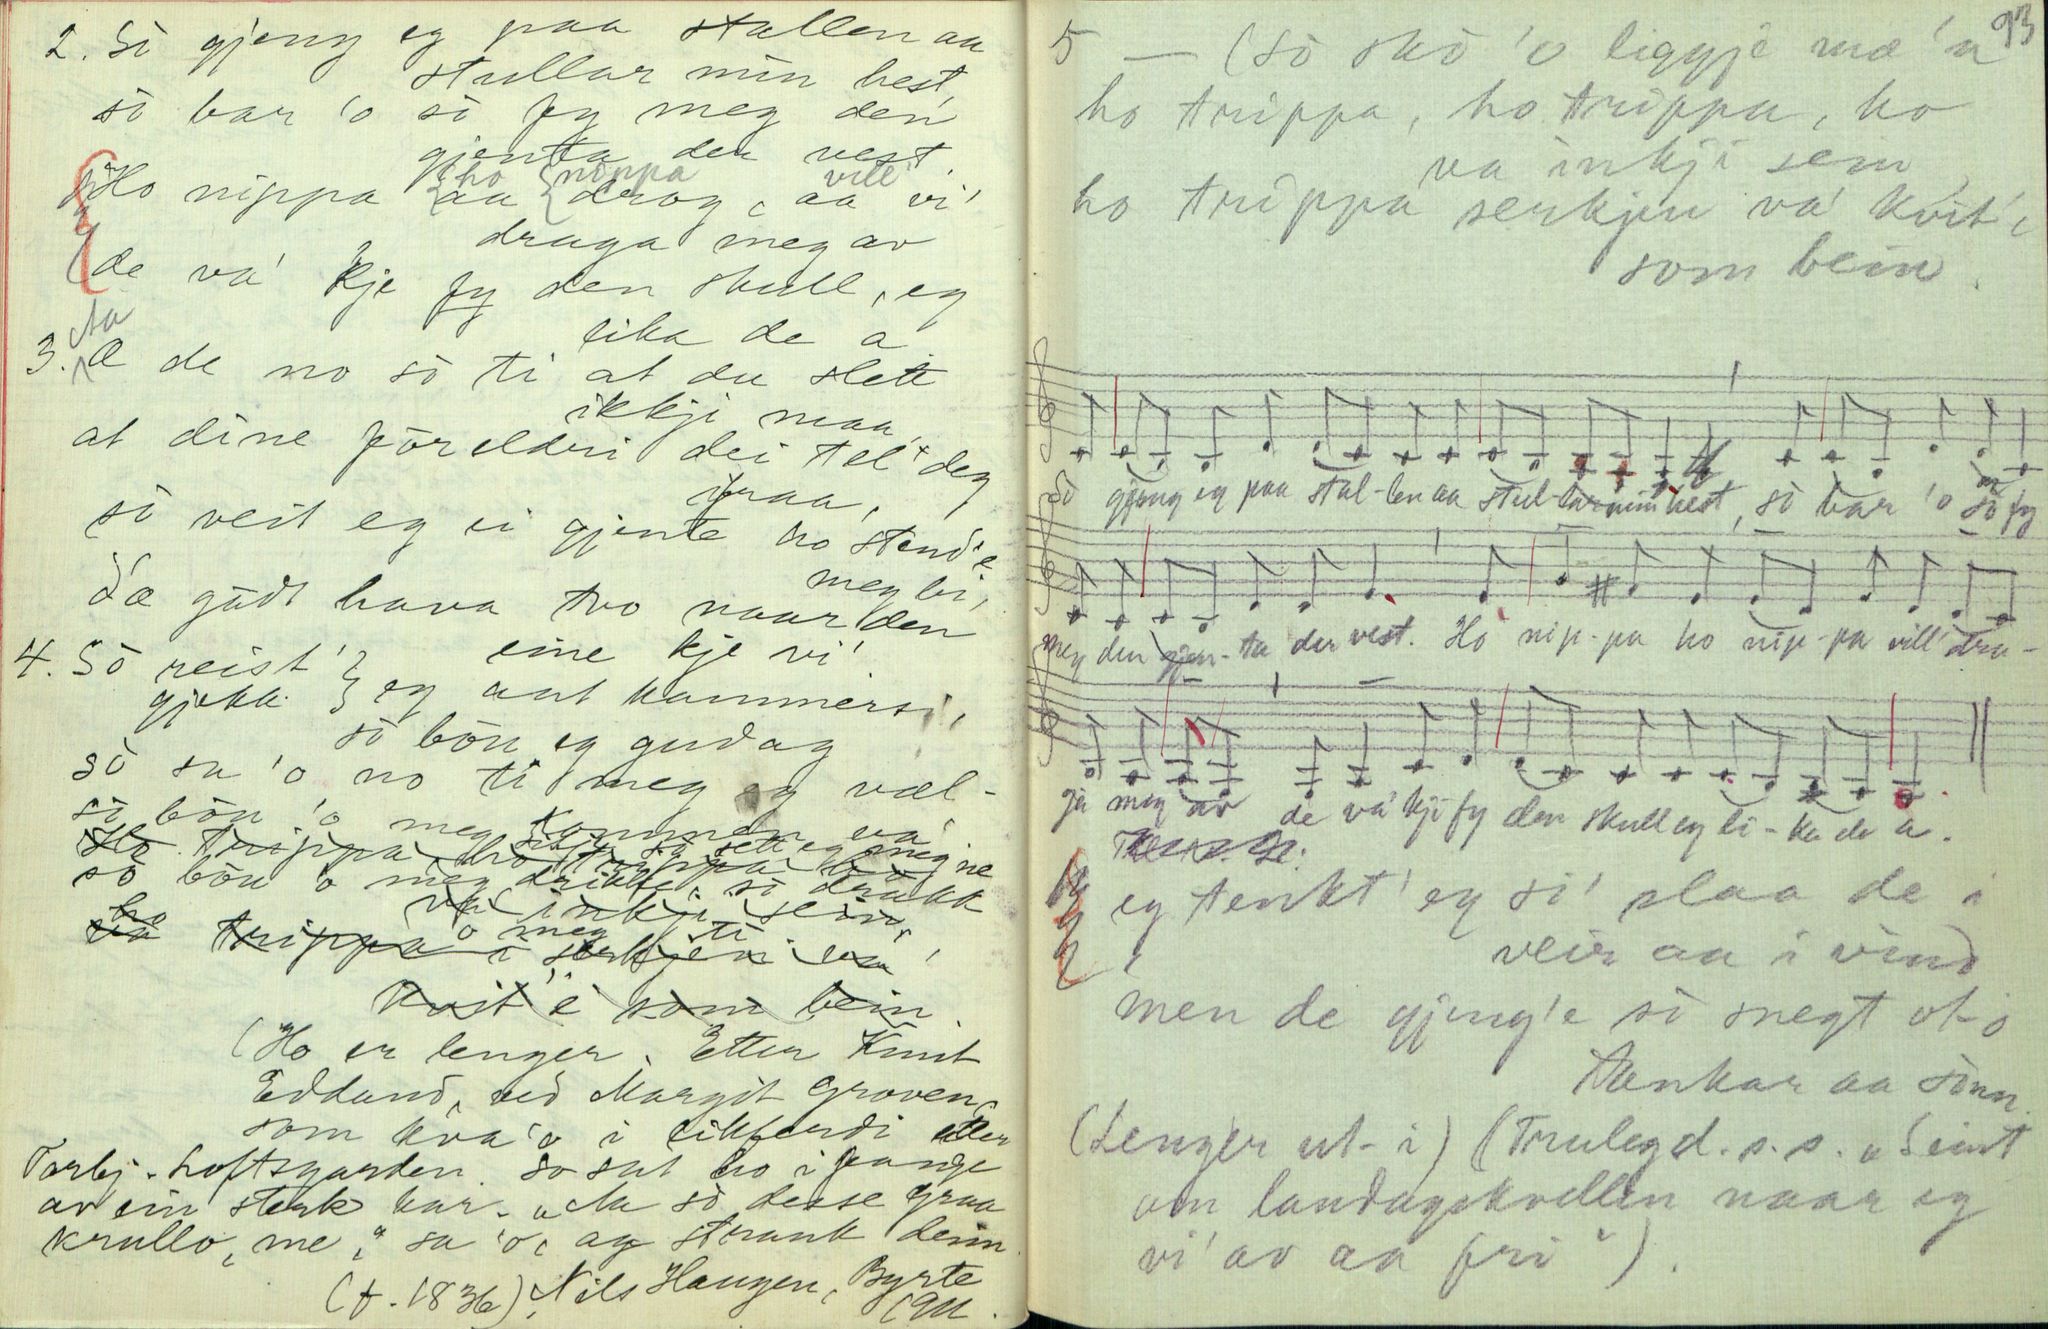 2. Sò gjeng eg paa stallen aa
stullar min hest,
sò bar 'o sò fy meg den
gjenta der vest
Ho nippa { aa { drog, aa vi'
ho nippa vill'
draga meg av
de va' kje fy den skull, eg
lika de a
3. Aa Æ de no sò ti at du slett
ikkji maa,
at dine föreldri dei tel' deg
fraa,
sò veit eg ei gjente ho stend'e
meg bi,
d'æ godt hava tvo naar den
eine kje vi'
4. Sò reist' }
gjekk } eg aat kammersi,
sò bön eg gudag
sò sa 'o no ti meg eg væl-
kommen va'
sò bön 'o meg sitja, sò sett eg meg ne
Ho trippa, ho trippa ho
sò bön 'o meg drikke, sò drakk
va inkji sein,
'o meg ti
ho trippa i serkjen va'
kvit'e som bein.
(Ho er lenger. Etter Knut
Edland, ved Margit Groven,
som kva 'o i likferdi etter
Torbj. Loftsgarden. so sat ho i fange
av ein sterk kar. „Aa sò desse graa
krullo, me," sa 'o, ag strauk deim.
(f. 1836) Nils Haugen, Byrte
93
5 — (sò sko 'o liggje mæ 'n
ho trippa, ho trippa, ho
va inkji sein
ho trippa serkjen va' kvit'e
som bein.
Sò gjeng eg paa stal-len aa stul-lar min hest, sò bar 'o sò fy
meg den gjen-ta der vest. Ho nip-pa ho nip-pa vill' dra-
ga meg av de va' kji fy den skull eg li-ka de a.
eg tenkt' eg si' slaa de i
veir aa i vind
men de gjeng'e sò snegt ot i
tankar aa sinn.
(Lenger ut-i) (Truleg d.s.s. „Seint
om laudagskvellen naar eg
vi' av aa fri").